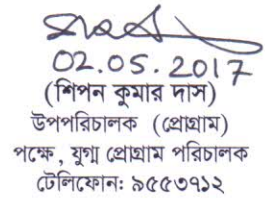 02.05.2017
(শিপন কুমার দাস)
উপপরিচালক (প্রোগ্রাম)
পক্ষে, যুগ্ম প্রোগ্রাম পরিচালক
টেলিফোনঃ ৯৫৫৩৭১২